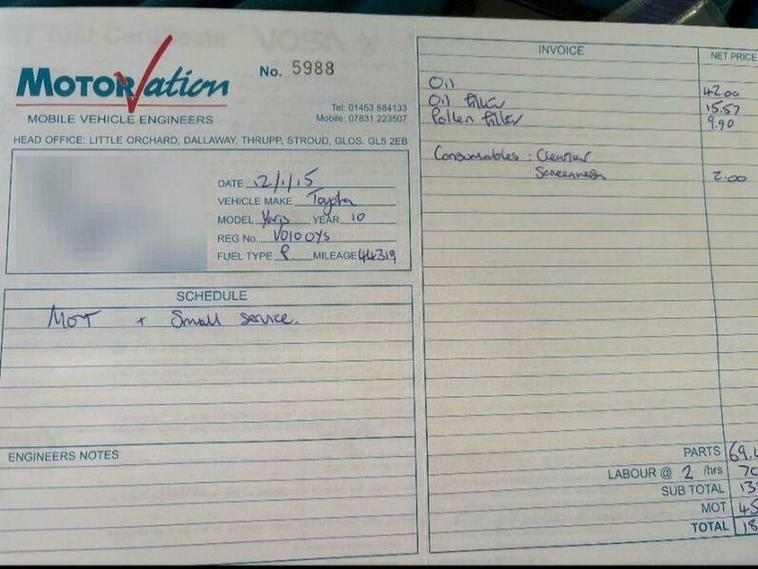 MOTORVation
No. 5988
MOBILE VEHICLE ENGINEERS
Tel: 01453 884133
Mobile: 07831 223507
HEAD OFFICE: LITTLE ORCHARD, DALLAWAY, THRUPP, STROUD, GLOS. GL5 2EB
DATE 12/1/15
VEHICLE MAKE Toyota
MODEL Yaris YEAR 10
REG No. VO10 OYS
FUEL TYPE P. MILEAGE 44319
SCHEDULE
MOT + Small service.
ENGINEERS NOTES
INVOICE NET PRICE
Oil 42.00
Oil filter 15.57
Pollen filter 9.90
Consumables : Cleaner
Screenwash 2.00
PARTS 69.4
LABOUR @ 2 /hrs 70
SUB TOTAL 13
MOT 45
TOTAL 18